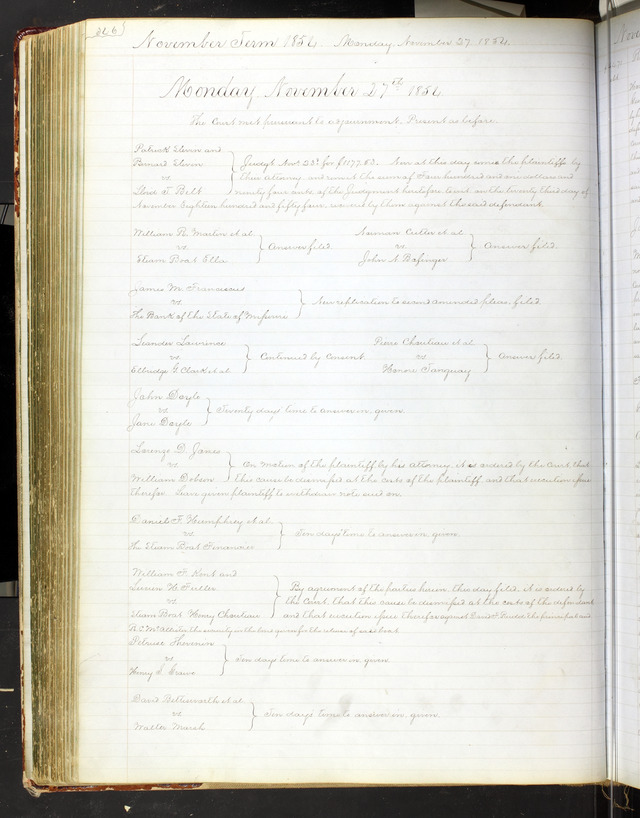 November Term 1854 Monday, November 27. 1854.
Monday November 27th 1854
The Court met pursuant to adjournment. Present as before.
Patrick and
Bernard
vs.
Lloyd D. Belt
Judgt Novr. 23d. for $1177.83. Now at this day comes the plaintiffs by
their attorney and remit the sum of Four hundred and one dollars and
ninety four cents of the Judgment heretofore had on the twenty third day of
November Eighteen hundred and fifty four, recovered by them against the said defendant.
William R. Martin et al
vs.
Steam Boat Ella
Answer filed.
Norman Cutler et al
vs.
John N.
Answer filed.
James M. Franciscus
vs.
The Bank of the State of Missouri
New replication to second amended pleas, filed.
Leander Lawrence
vs.
Elbridge G. Clark et al
Continued by consent.
Pierre Chouteau et al
vs.
Honore Tanguay
Answer filed.
John Doyle
vs.
Jane Doyle
Twenty days time to answer in, given.
Lorenzo D. Jones
vs.
William Dobson
On motion of the plaintiff by his attorney, it is ordered by the Court that
this cause be dismissed at the costs of the plaintiff, and that execution issue
therefor. Leave given plaintiff to withdraw note sued on.
Daniel F. Humphrey et al
vs.
The Steam Boat Financier
Ten days time to answer in, given.
William F. Kent and
H. Fuller
vs.
Steam Boat Henry Chouteau
By agreement of the parties herein, this day filed, it is ordered by
the Court, that this cause be dismissed at the costs of the defendant
and that execution issue therefor against the principal and
the security in the bond given for the release of said boat.
vs.
Henry S.
Ten days time to answer in, given.
David et al
vs.
Walter Marsh
Ten days time to answer in, given.